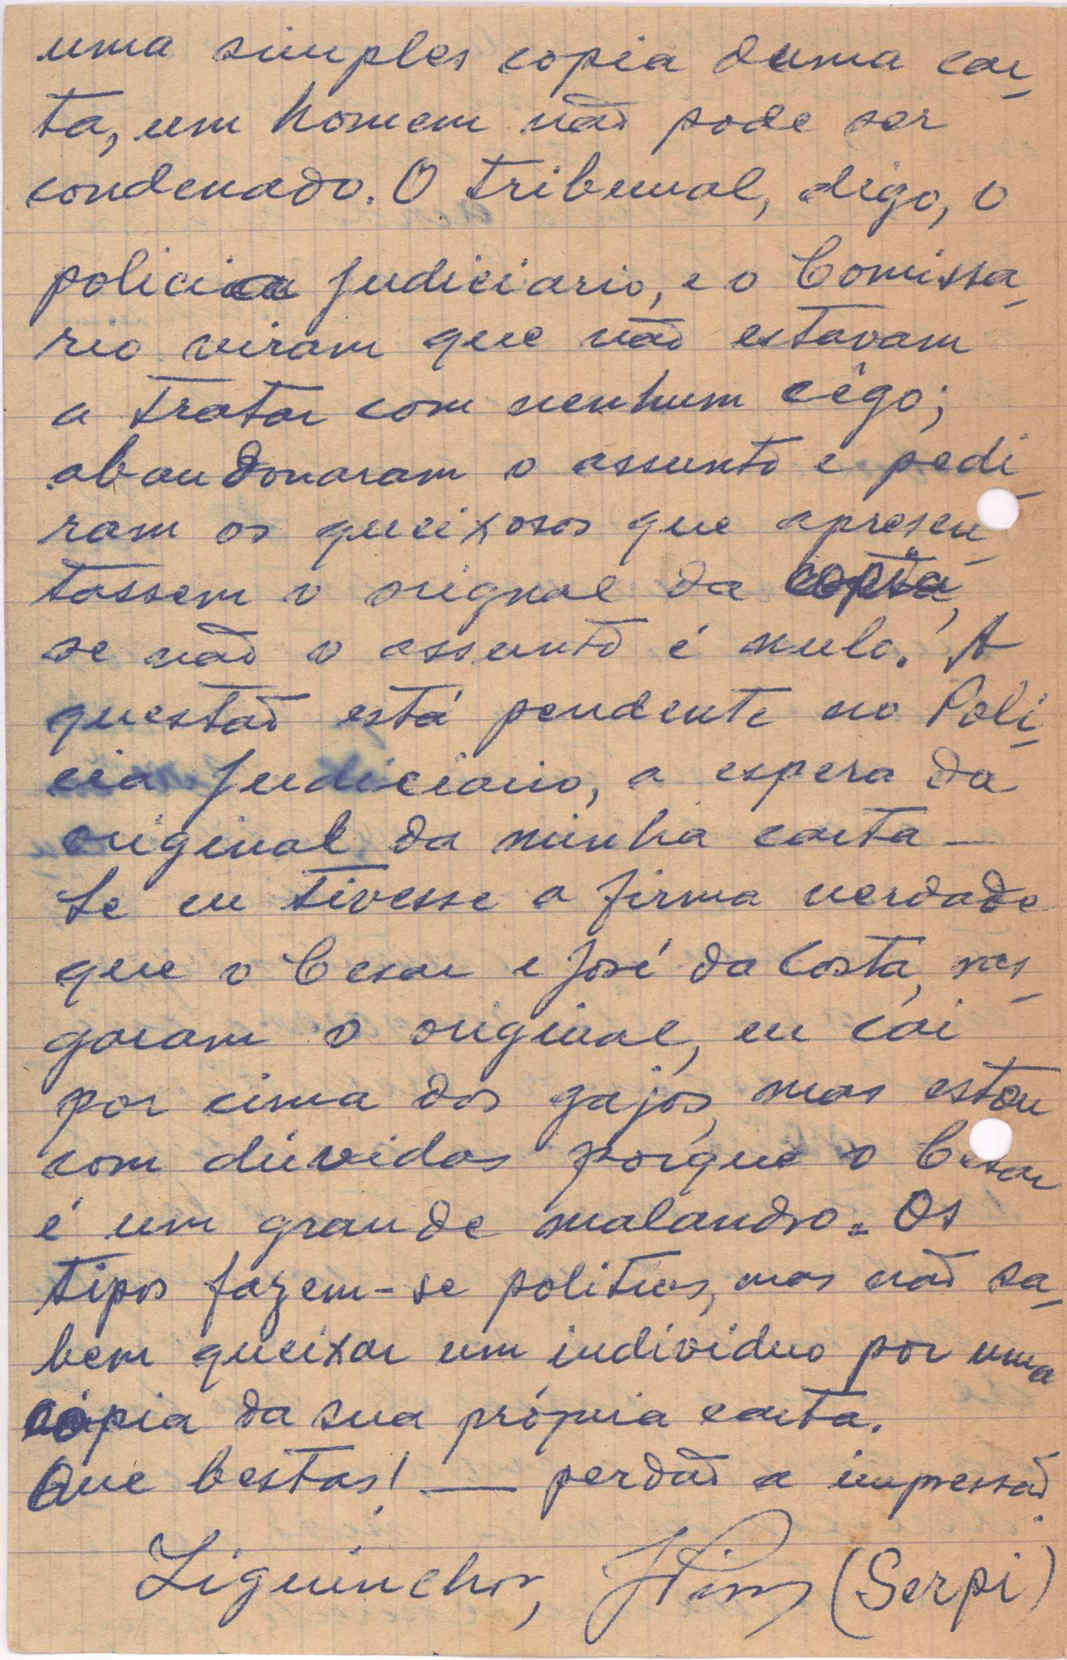 uma simples copia duma car-
ta, um homem não pode ser
condenado. O Tribunal, digo, o
policia Judiciario, e o Comissa-
rio viram que não estavam
a tratar com nenhum cêgo;
abandonaram o assunto e pedi-
ram os queixosos que apresen-
tassem o orignal da copia,
se não o assunto é nulo. A
questão está pendente no Poli-
cia Judiciario, a espera da
original da minha carta —
Se eu tivesse a firma verdade
que o Cesar e José da Costa, ras-
garam o original, eu cai
por cima dos gajos, mas estou
com dúvidas porque o Cesar
é um grande malandro. Os
tipos fazem-se politicos, mas não sa-
bem queixar um individuo por uma
cópia da sua própria carta.
Que bestas! — perdão a impressão.
Ziguinchor, (Serpi)